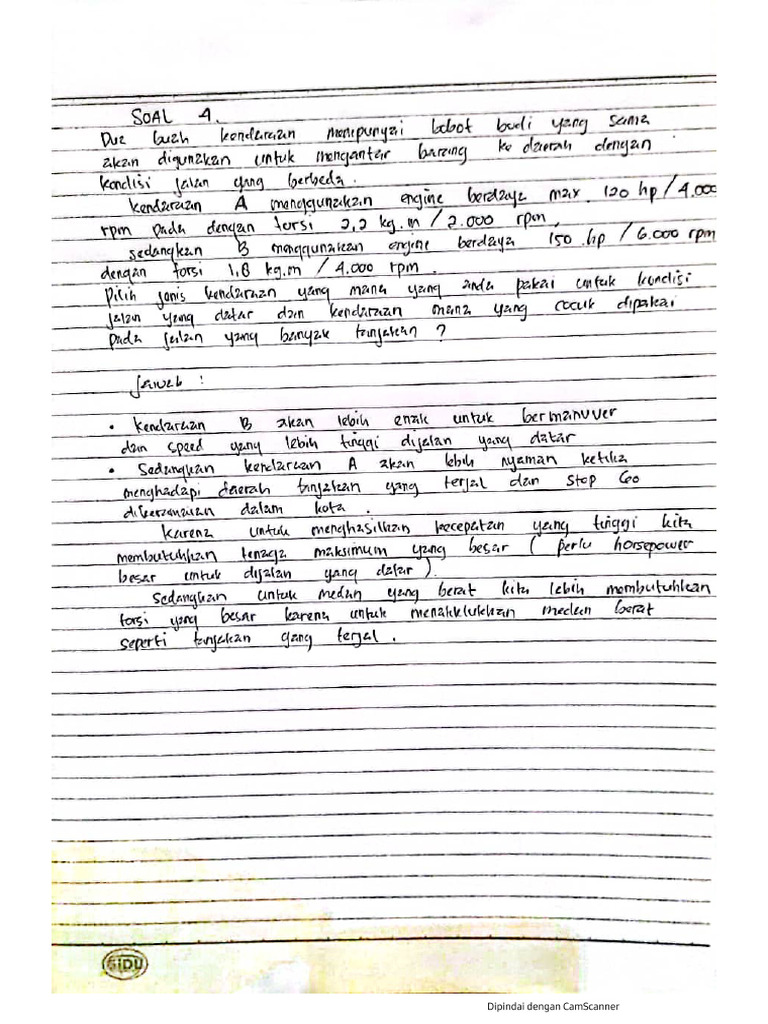 SOAL 4.
Dua buah kendaraan mempunyai bobot budi yang sama
akan digunakan untuk mengantar barang ke daerah dengan
kondisi jalan yang berbeda.
kendaraan A menggunakan engine berdaya max 120 hp / 4.000
rpm pada dengan torsi 2,2 kg.m / 2.000 rpm,
sedangkan B menggunakan engine berdaya 150 hp / 6.000 rpm
dengan torsi 1,8 kg.m / 4.000 rpm.
Pilih jenis kendaraan yang mana yang anda pakai untuk kondisi
jalan yang datar dan kendaraan mana yang cocok dipakai
pada jalan yang banyak tanjakan ?
Jawab :
• Kendaraan B akan lebih enak untuk bermanuver
dan speed yang lebih tinggi dijalan yang datar
• Sedangkan kendaraan A akan lebih nyaman ketika
menghadapi daerah tanjakan yang terjal dan stop Go
dikeramaian dalam kota.
Karena untuk menghasilkan kecepatan yang tinggi kita
membutuhkan tenaga maksimum yang besar ( perlu horsepower
besar untuk dijalan yang datar ).
Sedangkan untuk medan yang berat kita lebih membutuhkan
torsi yang besar karena untuk menaklukkan medan berat
seperti tanjakan yang terjal.
SiDU
Dipindai dengan CamScanner